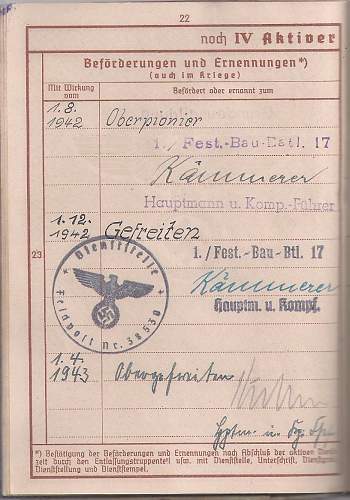 22
noch IV Aktiver
Beförderungen und Ernennungen*)
(auch im Kriege)
Mit Wirkung vom
Befördert oder ernannt zum
1.8.
1942 Oberpionier
1./Fest.-Bau-Batl. 17
Kämmerer
Hauptmann u. Komp.-Führer
1.12.
1942 Gefreiten
23
1./Fest.-Bau-Btl. 17
Kämmerer
Hauptm. u. Kompf.
Dienststelle
Feldpost Nr. 38530
1.4.
1943 Obergefreiten
Hptm. in
*) Bestätigung der Beförderungen und Ernennungen nach Abschluß der aktiven
zeit durch den Entlassungstruppenteil usw. mit Dienststelle, Unterschrift, Dienstgrad,
Dienststellung und Dienststempel.